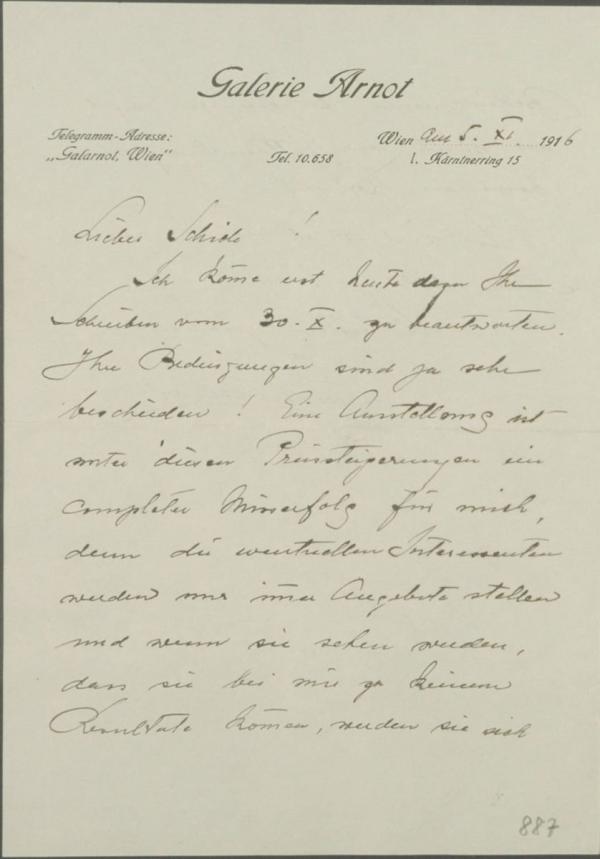 Galerie Arnot
Telegramm-Adresse:
„Galarnot, Wien“
Tel. 10.658
Wien am 5. XI. 1916
I. Kärntnerring 15
Lieber Schiele !
Ich kom̄e erst heute dazu Ihr
Schreiben vom 30. X. zu beantworten.
Ihre Bedingungen sind ja sehr
bescheiden ! Eine Ausstellung ist
unter diesen Preissteigerungen ein
completer Misserfolg für mich,
denn die eventuellen Interessenten
werden mir im̄er Angebote stellen
und wenn sie sehen werden,
dass sie bei mir zu keinem
Resultate kom̄en, werden sie sich
887